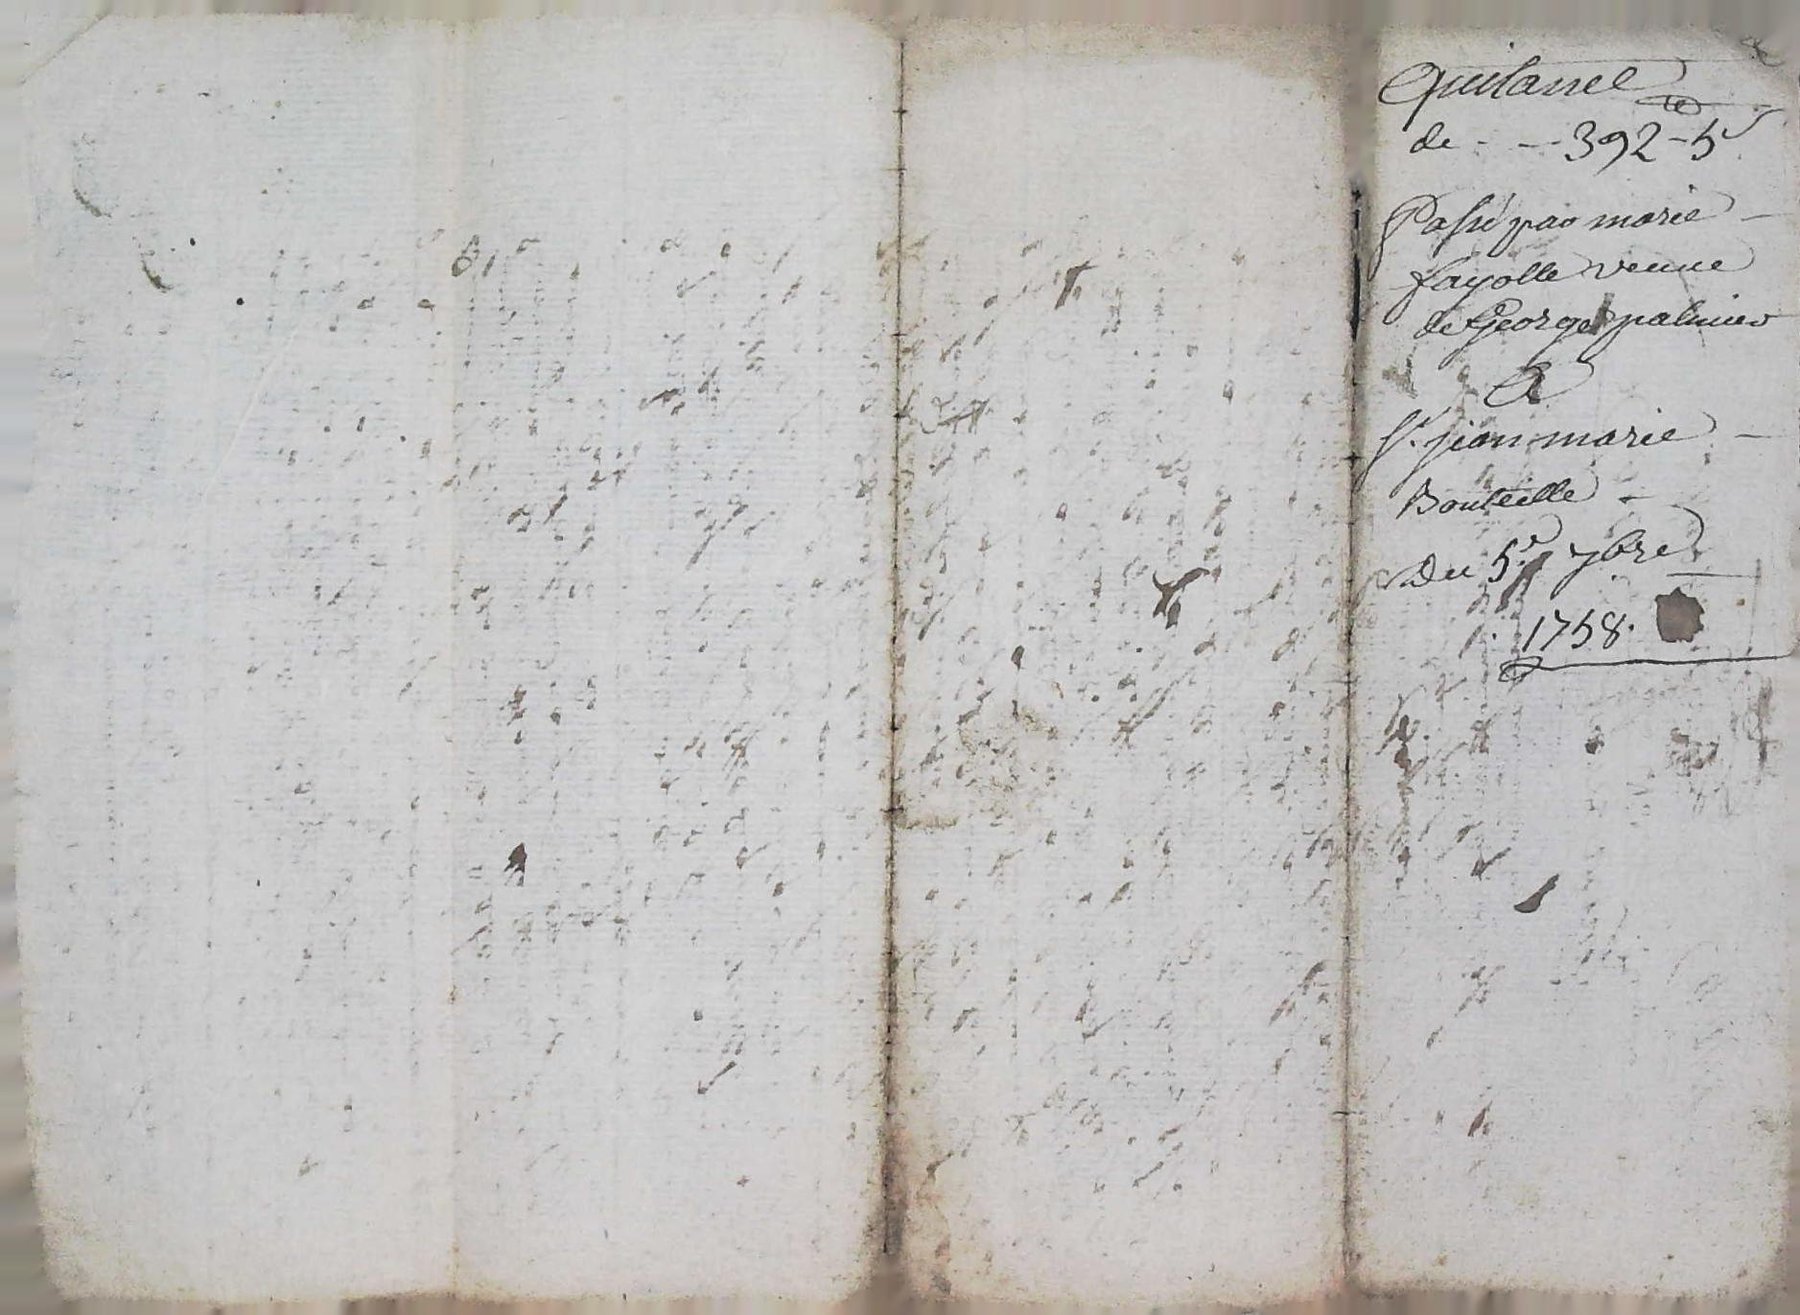 Quitance
de - - 392 - 5ˢ
Passé par marie
fayolle veuve
de George palmier
A
Sʳ. jean marie
Bouteille
Du 5ᵉ 7bre
1758.